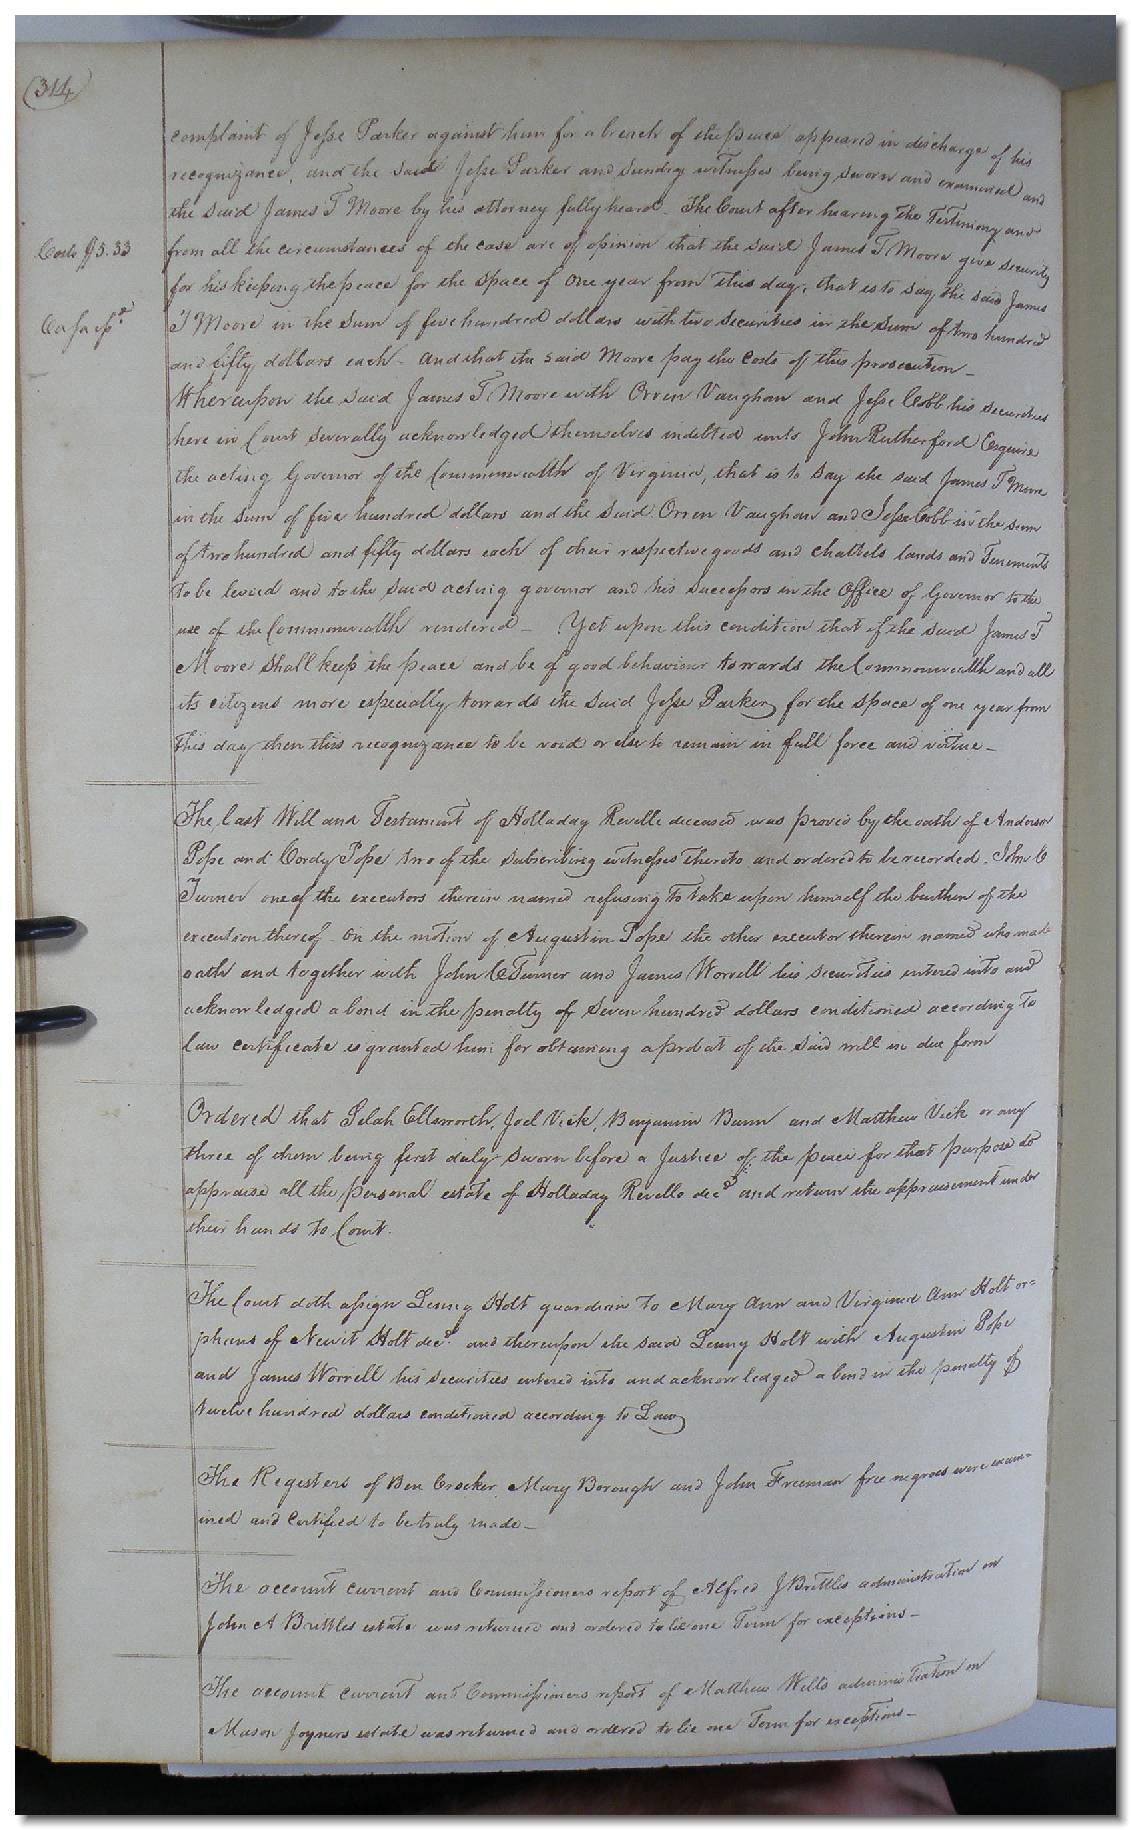 (314)
complaint of Jesse Parker against him for a breach of the peace appeared in discharge of his
recognizance, and the said Jesse Parker and sundry witnesses being sworn and examined and
the said James T Moore by his attorney fully heard. The Court after hearing the Testimony and
Costs $5.33
from all the circumstances of the case are of opinion that the said James T Moore give security
for his keeping the peace for the space of one year from this day, that is to say, the said James
Ca sa issd
T Moore in the sum of five hundred dollars with two securities in the sum of two hundred
and fifty dollars each - and that the said Moore pay the costs of this prosecution -
Whereupon the said James T Moore with Orren Vaughan and Jesse Cobb his securities
here in Court severally acknowledged themselves indebted unto John Rutherford Esquire
the acting Governor of the Commonwealth of Virginia, that is to say the said James T Moore
in the sum of five hundred dollars and the said Orren Vaughan and Jesse Cobb in the sum
of two hundred and fifty dollars each of their respective goods and chattels lands and Tenements
to be levied and to the said acting governor and his successors in the Office of Governor to the
use of the Commonwealth rendered - Yet upon this condition that if the said James T
Moore shall keep the peace and be of good behaviour towards the Commonwealth and all
its citizens more especially towards the said Jesse Parker for the space of one year from
this day then this recognizance to be void or else to remain in full force and virtue -
The last Will and Testament of Holladay Revelle deceased was proved by the oath of Anderson
Pope and Cordy Pope two of the subscribing witnesses thereto and ordered to be recorded. John C
Turner one of the executors therein named refusing to take upon himself the burthen of the
execution thereof - On the motion of Augustin Pope the other executor therein named who made
oath and together with John C Turner and James Worrell his securities entered into and
acknowledged a bond in the penalty of seven hundred dollars conditioned according to
law certificate is granted him for obtaining a probat of the said will in due form
Ordered that Selah Ellsworth, Joel Vick, Benjamin Bunn and Matthew Vick or any
three of them being first duly sworn before a Justice of the peace for that purpose do
appraise all the personal estate of Holladay Revelle decd. and return the appraisement under
their hands to Court.
The Court doth assign Lenny Holt guardian to Mary Ann and Virginia Ann Holt or=
phans of Newit Holt decd. and thereupon the said Lenny Holt with Augustin Pope
and James Worrell his securities entered into and acknowledged a bond in the penalty of
twelve hundred dollars conditioned according to Law
The Registers of Ben Crocker, Mary Borough and John Freeman free negroes were exam=
ined and certified to be truly made -
The account current and Commissioners report of Alfred J Brittles administration on
John A Brittles estate was returned and ordered to lie one Term for exceptions -
The account current and Commissioners report of Matthew Wells administration on
Mason Joyners estate was returned and ordered to lie one Term for exceptions -